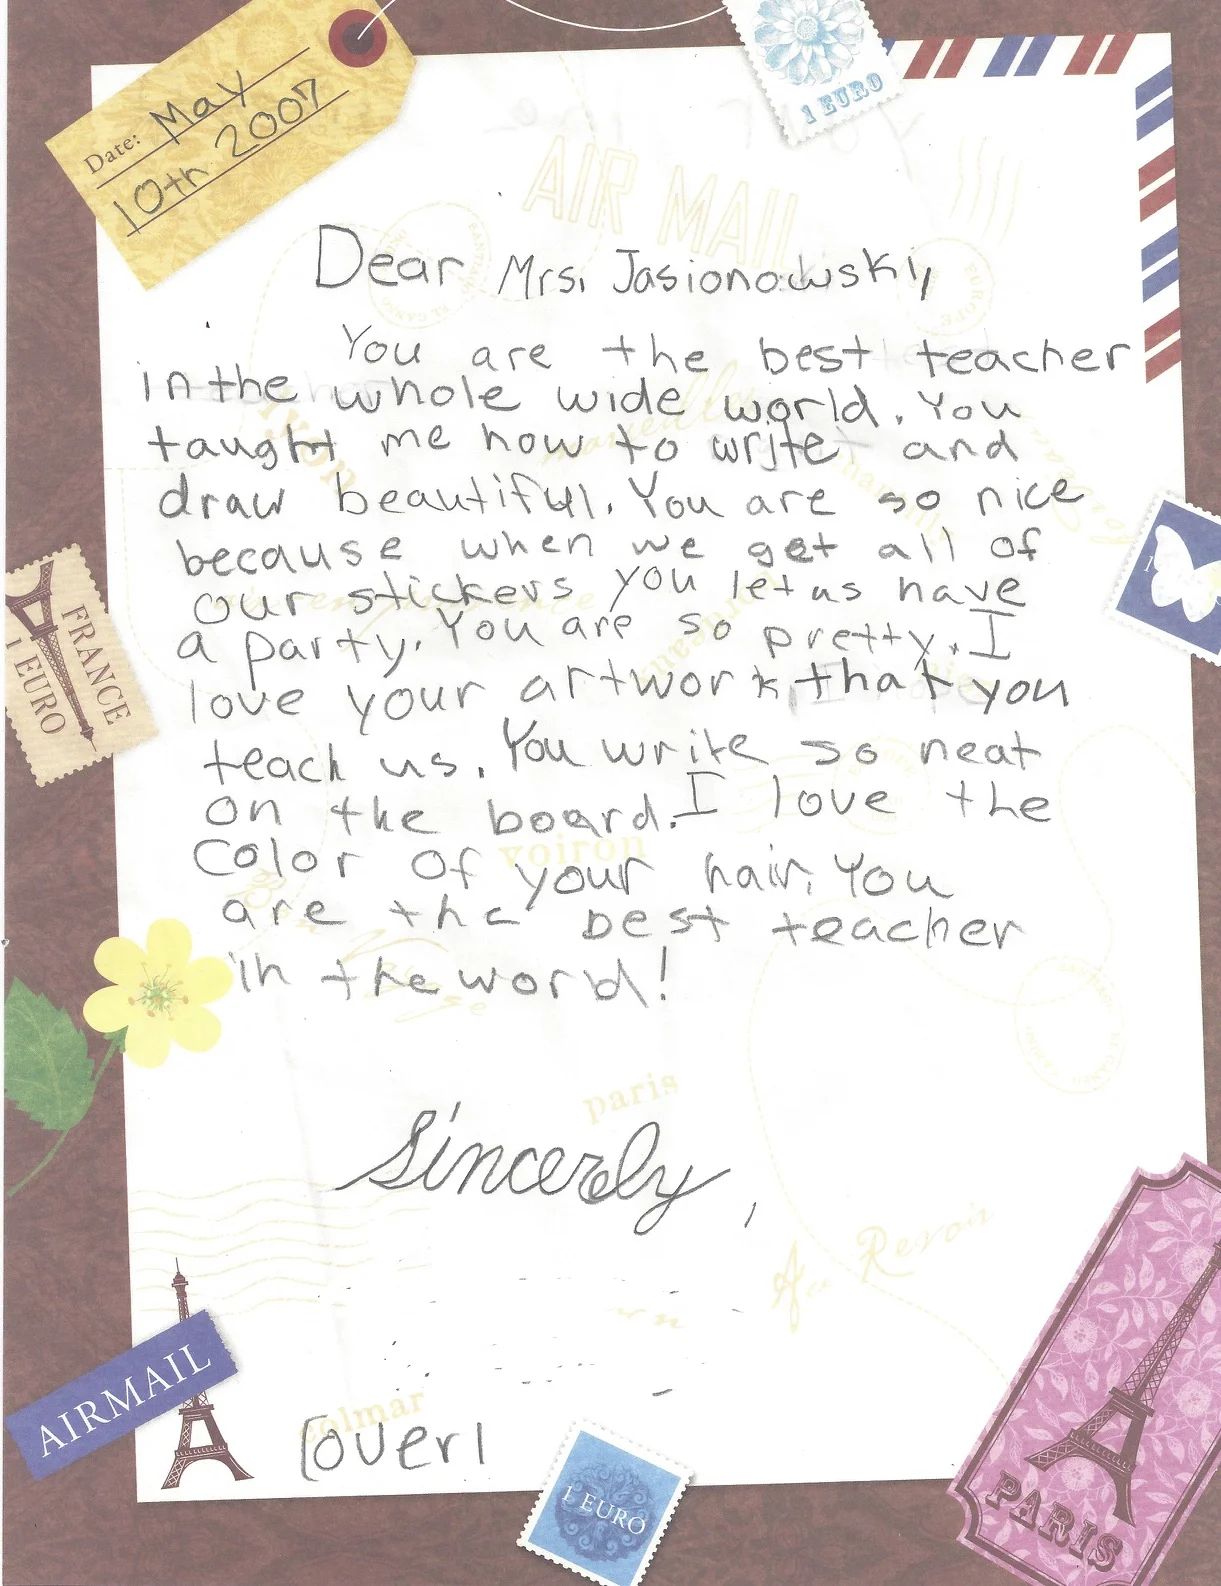 Date: May
10th 2007
1 EURO
AIR MAIL
Dear Mrs. Jasionowski,
You are the best teacher
in the whole wide world. You
taught me how to write and
draw beautiful. You are so nice
because when we get all of
our stickers you let us have
a party. You are so pretty. I
love your artwork that you
teach us. You write so neat
on the board. I love the
color of your hair. You
are the best teacher
in the world!
Sincerly,
FRANCE
1 EURO
voiron
Bon Voyage
paris
Au Revoir
AIRMAIL
colmar
(over)
1 EURO
PARIS